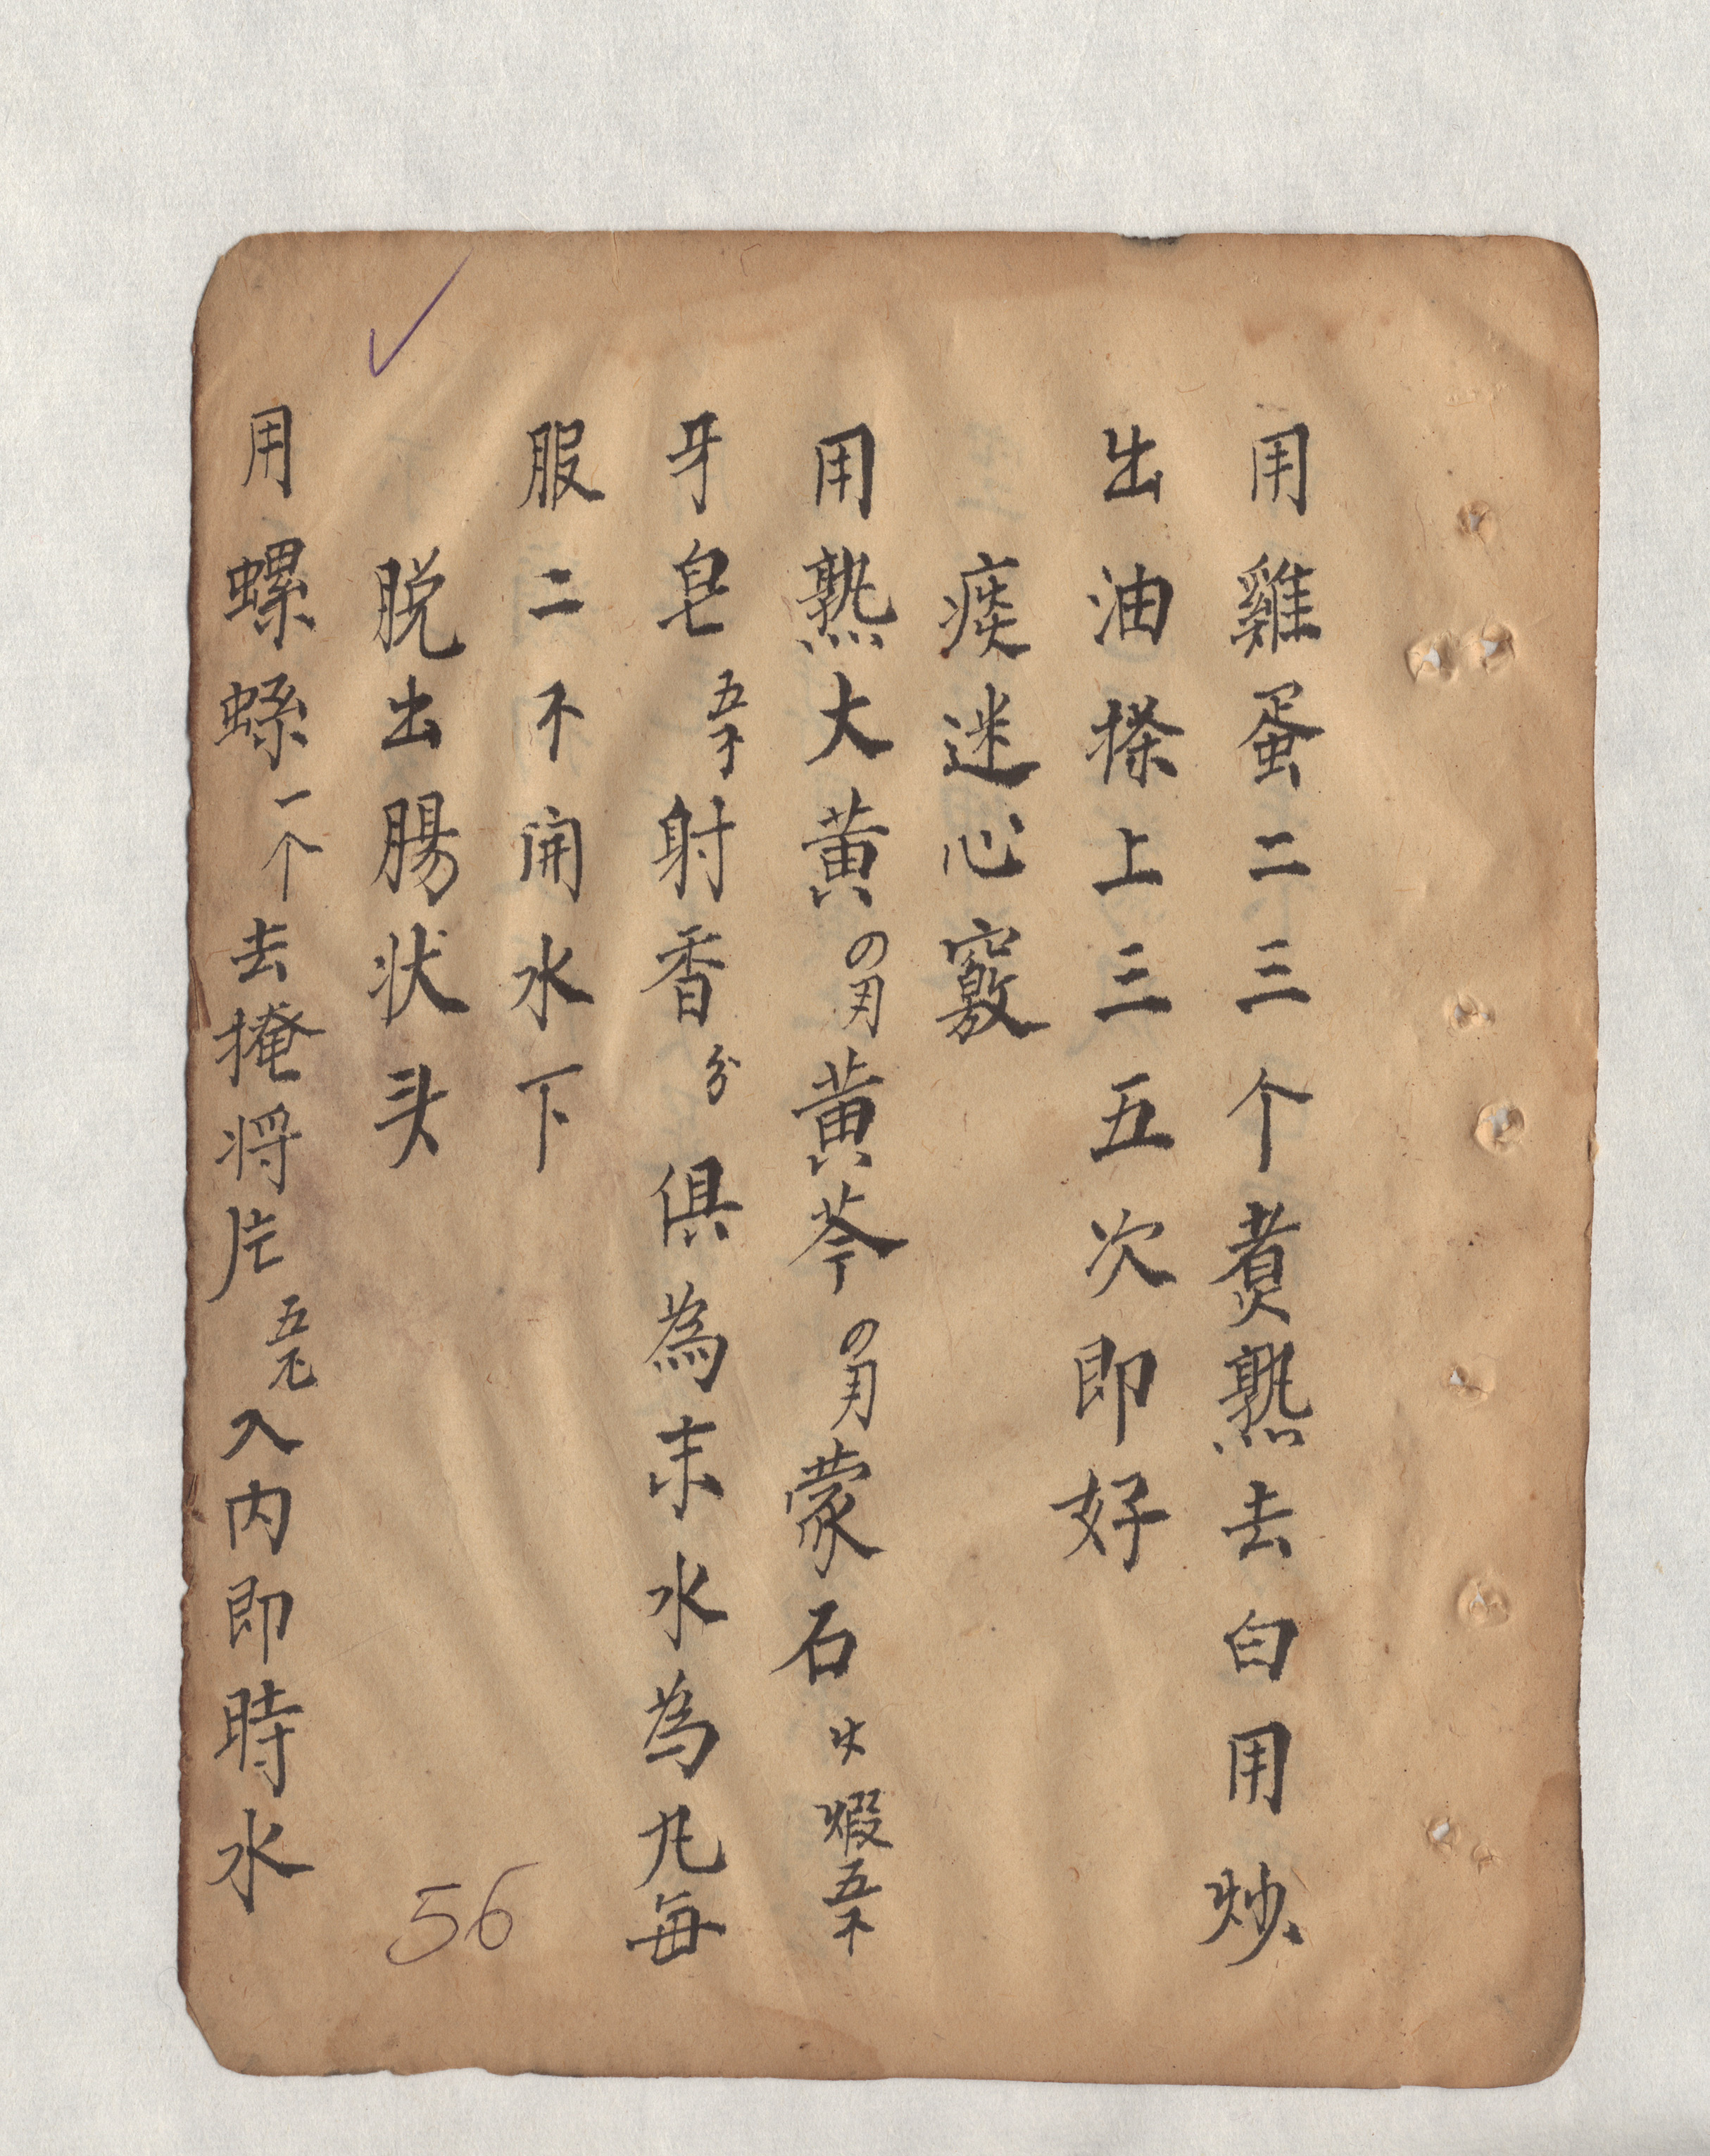 用雞蛋二三个煑熟去白用炒
出油搽上三五次即好
痰迷心竅
用熟大黄の另黄芩の另蒙石煅五
牙皂五射香分俱為末水為丸每
服二不開水下
脱出腸状头
用螺螄一个去掩将片五入内即時水
56